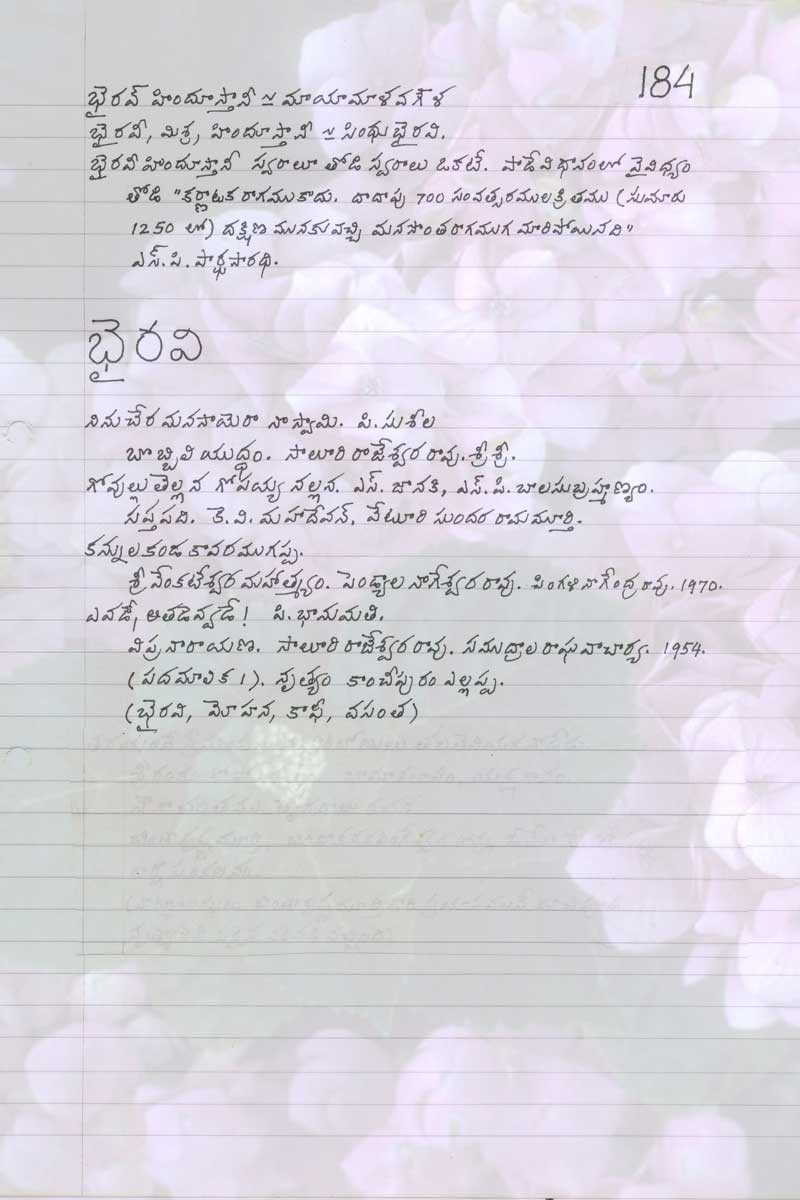 184
భైరవ్ హిందూస్తానీ ~ మాయామాళవగౌళ
భైరవీ, మిశ్ర, హిందూస్తానీ ~ సింధుభైరవి.
భైరవీ హిందూస్తానీ స్వరాలూ తోడి స్వరాలు ఒకటే. పాడేవిధానంలో వైవిధ్యం
తోడి "కర్ణాటక రాగముకాదు. దాదాపు 700 సంవత్సరములక్రితము (సుమారు
1250 లో) దక్షిణమునకువచ్చి మనసొంతరాగముగ మారిపోయినది"
ఎస్.పి. పార్థసారథి.
భైరవి
నినుచేర మనసాయెరా నాస్వామి. పి.సుశీల
బొబ్బిలియుద్ధం. సాలూరి రాజేశ్వరరావు. శ్రీశ్రీ.
గోవుల్లు తెల్లన గోపయ్య నల్లన. ఎస్. జానకి, ఎస్.పి.బాలసుబ్రహ్మణ్యం.
సప్తపది. కె.వి.మహాదేవన్, వేటూరి సుందరరామమూర్తి.
కన్నులకండ కావరముగప్ప.
శ్రీవేంకటేశ్వరమహాత్మ్యం. పెండ్యాల నాగేశ్వరరావు. పింగళి నాగేంద్రరావు. 1970.
ఎవడే, అతడెవ్వడే! పి.భానుమతి.
విప్రనారాయణ. సాలూరి రాజేశ్వరరావు. సముద్రాల రాఘవాచార్య. 1954.
(పదమాలిక 1). నృత్యం కాంచీపురం ఎల్లప్ప.
(భైరవి, మోహన, కాఫీ, వసంత)